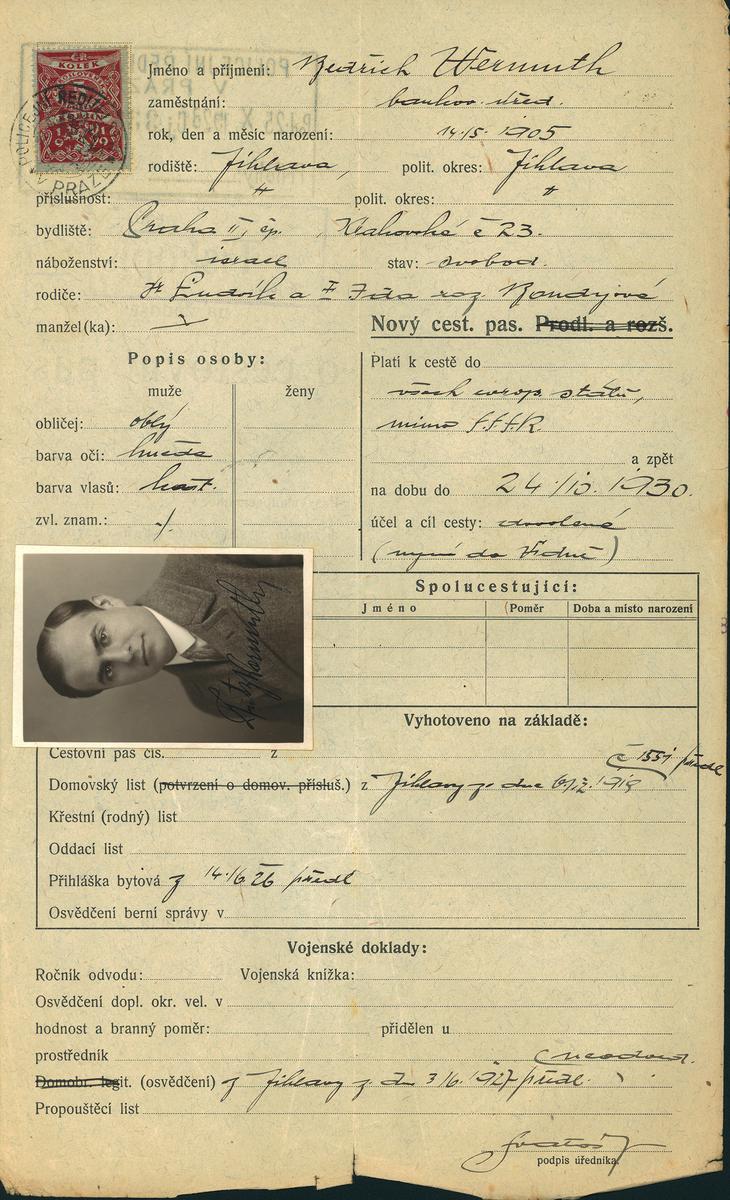 KOLEK
PRAZE
Jméno a příjmení: Bedřich Wermuth
zaměstnání: bankov. úřed.
rok, den a měsíc narození: 14./5. 1905
rodiště: Jihlava, polit. okres: Jihlava
příslušnost: " polit. okres: "
bydliště: Praha II, čp. č 23.
náboženství: israel stav: svobod.
rodiče: Ludvík a Ida roz. Bondyová
manžel(ka):
Nový cest. pas. Prodl. a rozš.
Popis osoby:
muže ženy
obličej: oblý
barva očí: hnědé
barva vlasů: kašt.
zvl. znam.: ./.
Platí k cestě do
všech evrop. států,
mimo S.S.S.R.
a zpět
na dobu do 24./10. 1930.
účel a cíl cesty: dovolená
(nyní do Vídně)
Spolucestující:
Jméno Poměr Doba a místo narození
Fritz Wermuth
Vyhotoveno na základě:
Cestovní pas čís. z
č 1551 předl
Domovský list (potvrzení o domov. přísluš.) z Jihlavy ze dne
Křestní (rodný) list
Oddací list
Přihláška bytová z 14./6. 26 předl
Osvědčení berní správy v
Vojenské doklady:
Ročník odvodu: Vojenská knížka:
Osvědčení dopl. okr. vel. v
hodnost a branný poměr: přidělen u
prostředník neodved.
Domobr. legit. (osvědčení) z Jihlavy z. dne 3/6. 1927 předl.
Propouštěcí list
podpis úředníka.